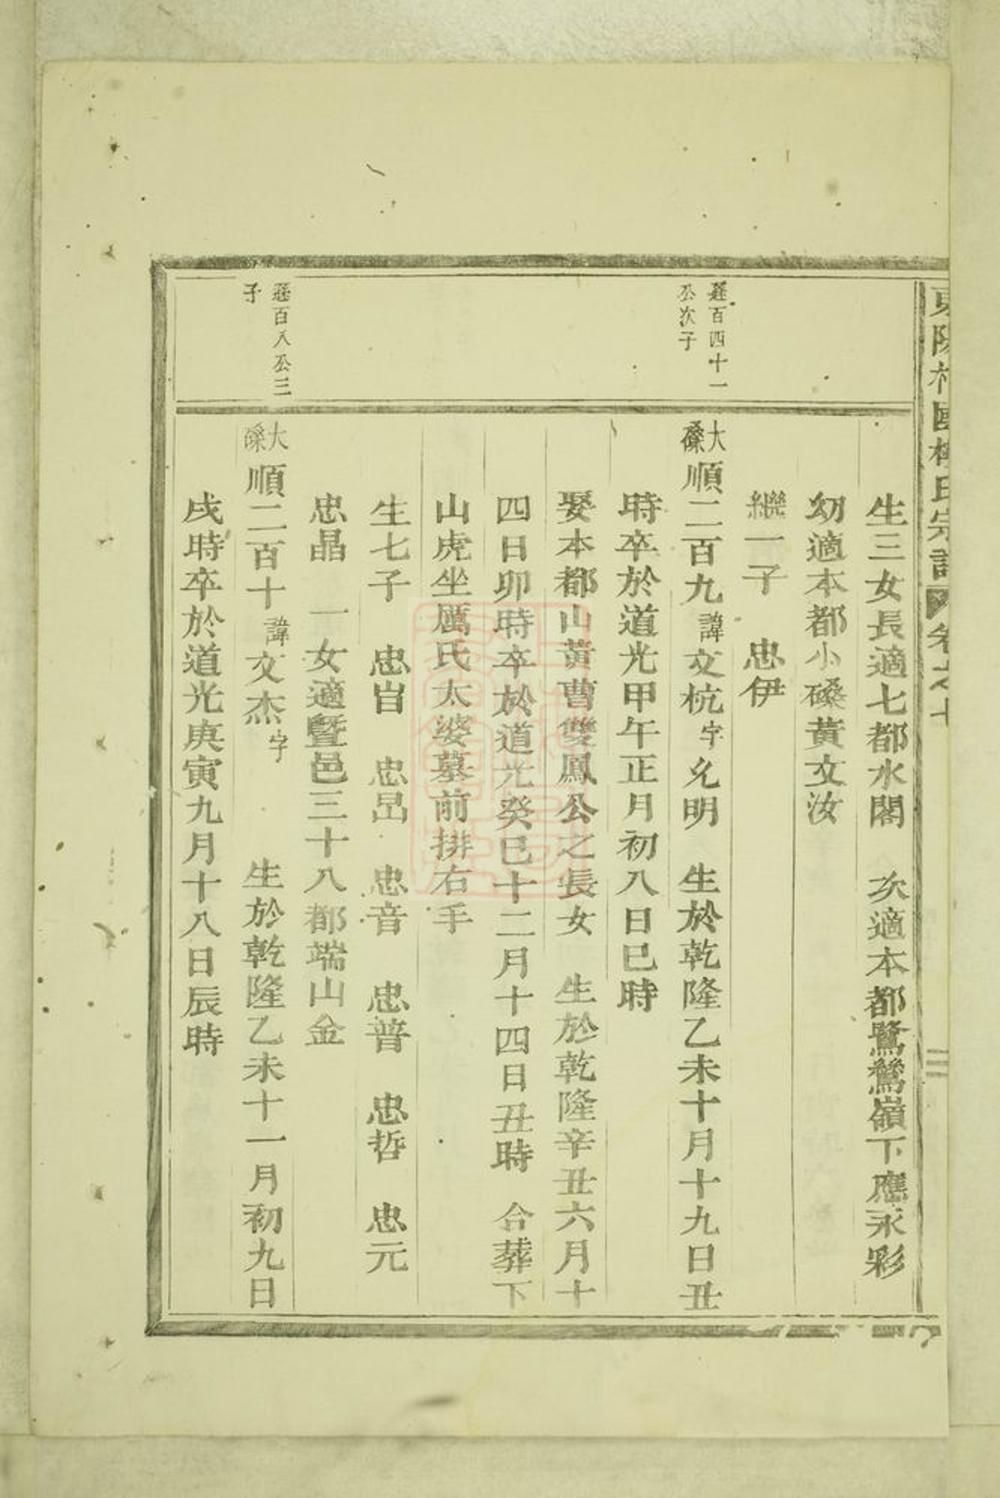 宗譜 卷之十
生三女長適七都水閣 次適本都鷺鷥嶺下應永彩
幼適本都小磉黃文汝
繼一子 忠伊
百四十一
公次子
大磉
順二百九諱文杭字允明 生於乾隆乙未十月十九日丑
時卒於道光甲午正月初八日巳時
娶本都山黃曹雙鳳公之長女 生於乾隆辛丑六月十
四日卯時卒於道光癸巳十二月十四日丑時 合葬下
山虎坐厲氏太婆墓前排右手
生七子 忠 忠 忠音 忠普 忠哲 忠元
忠晶 一女適暨邑三十八都端山金
百八公三
子
大磉
順二百十諱文杰字 生於乾隆乙未十一月初九日
戌時卒於道光庚寅九月十八日辰時